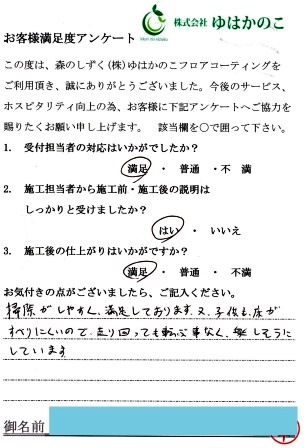 Mori no sizuku
株式会社 ゆはかのこ
お客様満足度アンケート
この度は、森のしずく(株)ゆはかのこフロアコーティングを
ご利用頂き、誠にありがとうございました。今後のサービス、
ホスピタリティ向上の為、お客様に下記アンケートへご協力を
賜りたくお願い申し上げます。 該当欄を○で囲って下さい。
1. 受付担当者の対応はいかがでしたか?
満足 ・ 普通 ・不 満
2. 施工担当者から施工前・施工後の説明は
しっかりと受けましたか?
はい ・ いいえ
3. 施工後の仕上がりはいかがですか?
満足 ・ 普通 ・ 不満
お気付きの点がございましたら、ご記入ください。
掃除がしやすく、満足しております。又、子供も床が
すべりにくいので、走り回っても転ぶ事なく、楽しそうに
しています
御名前